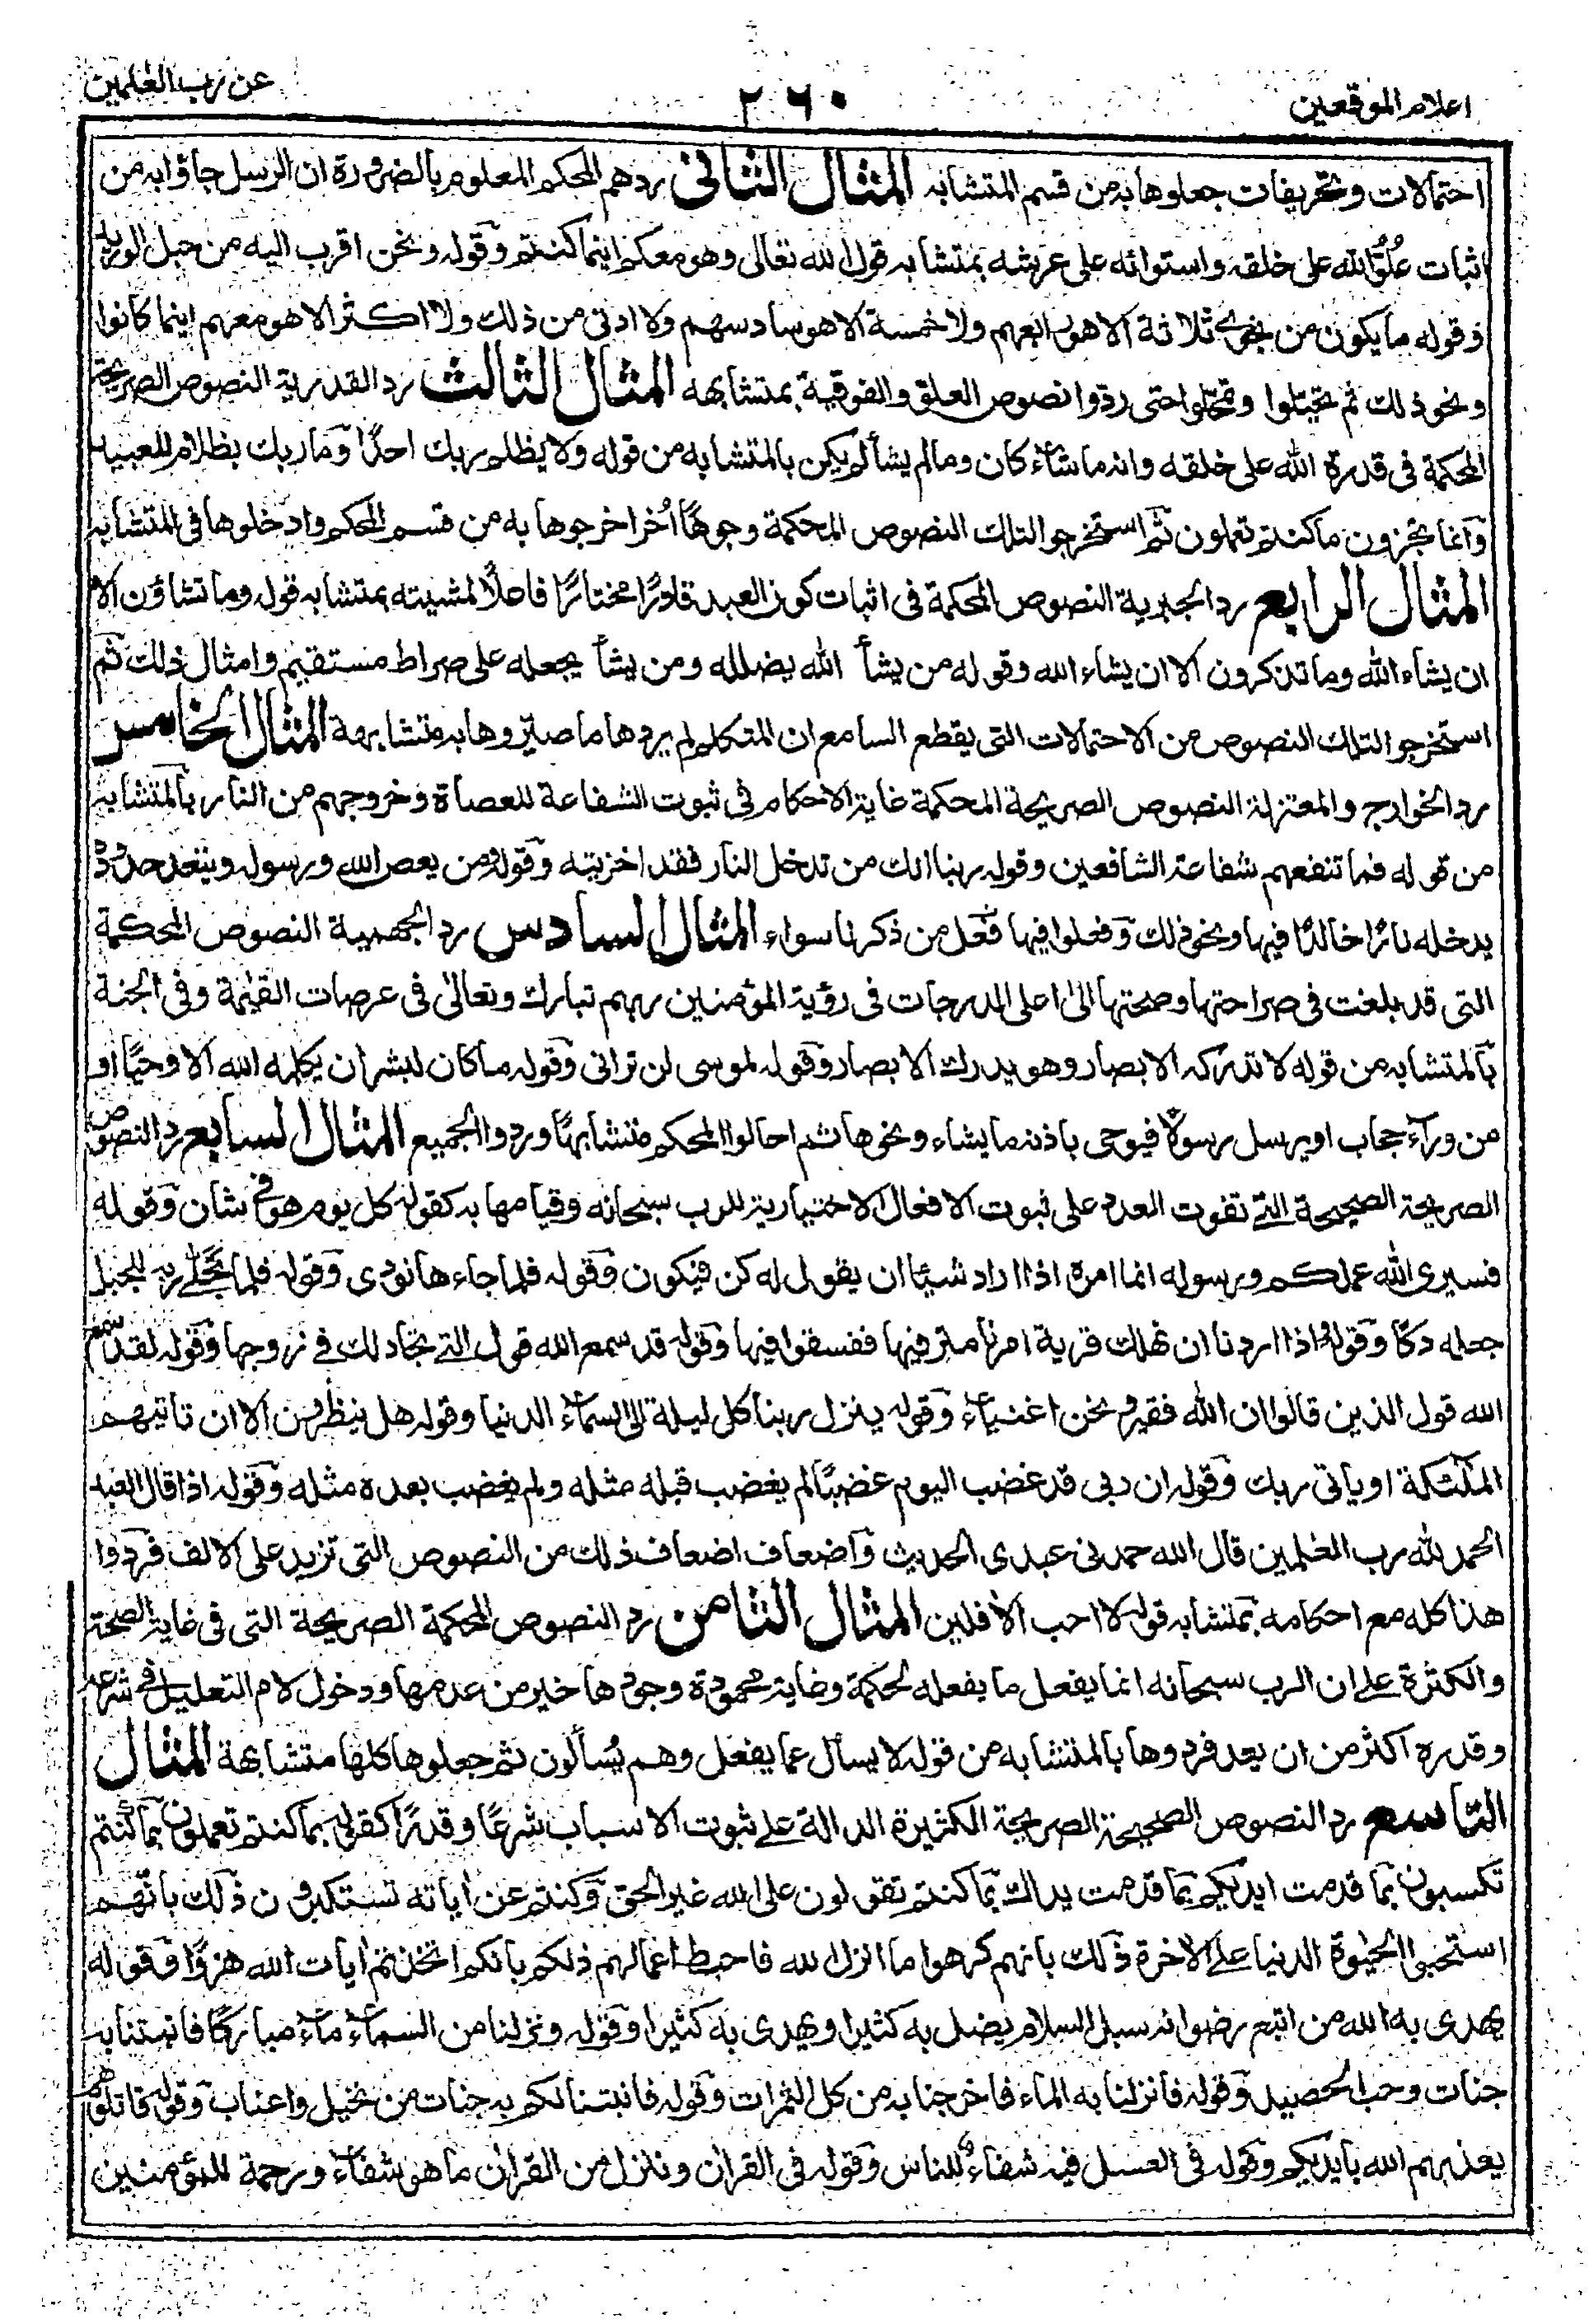 اعلام الموقعين
٢٦٠
عن رب العلمين
احتمالات وتحريفات جعلوها به من قسم المتشابه المثال الثانى ردهم المحكم المعلوم بالضرورة ان الرسل جاؤا به من
اثبات علو الله على خلقه واستوائه على عرشه بمتشابه قول الله تعالى وهو معكم اينما كنتم وقوله ونحن اقرب اليه من حبل الوريد
وقوله ما يكون من نجوى ثلاثة الا هو رابعهم ولا خمسة الا هو سادسهم ولا ادنى من ذلك ولا اكثر الا هو معهم اينما كانوا
ونحو ذلك ثم تحيلوا وتمحلوا حتى ردوا نصوص العلو والفوقية بمتشابهه المثال الثالث رد القدرية النصوص الصريحة
المحكمة فى قدرة الله على خلقه وانه ما شاء كان وما لم يشأ لم يكن بالمتشابه من قوله ولا يظلم ربك احدًا وما ربك بظلام للعبيد
وانما تجزون ما كنتم تعملون ثم استخرجوا لتلك النصوص المحكمة وجوهًا أخر اخرجوها به من قسم المحكم وادخلوها فى المتشابه
المثال الرابع رد الجبرية النصوص المحكمة فى اثبات كون العبد قادرًا مختارًا فاعلًا لمشيته بمتشابه قوله وما تشاؤن الا
ان يشاء الله وما تذكرون الا ان يشاء الله وقوله من يشأ الله يضلله ومن يشأ يجعله على صراط مستقيم وامثال ذلك ثم
استخرجوا لتلك النصوص من الاحتمالات التى يقطع السامع ان المتكلم لم يردها ما صيروها به متشابهة المثال الخامس
رد الخوارج والمعتزلة النصوص الصريحة المحكمة غاية الاحكام فى ثبوت الشفاعة للعصاة وخروجهم من النار بالمتشابه
من قوله فما تنفعهم شفاعة الشافعين وقوله ربنا انك من تدخل النار فقد اخزيته وقوله ومن يعص الله ورسوله ويتعد حدوده
يدخله نارًا خالدًا فيها ونحو ذلك وفعلوا فيها فعل من ذكرنا سواء المثال السادس رد الجهمية النصوص المحكمة
التى قد بلغت فى صراحتها وصحتها الى اعلى الدرجات فى رؤية المؤمنين ربهم تبارك وتعالى فى عرصات القيمة وفى الجنة
بالمتشابه من قوله لا تدركه الابصار وهو يدرك الابصار وقوله لموسى لن ترانى وقوله ما كان لبشر ان يكلمه الله الا وحيًا او
من وراء حجاب او يرسل رسولا فيوحى باذنه ما يشاء ونحوها ثم احالوا المحكم متشابهًا وردوا الجميع المثال السابع رد النصوص
الصريحة الصحيحة التى تفوت العدد على ثبوت الافعال الاختيارية للرب سبحانه وقيامها به كقوله كل يوم هو فى شان وقوله
فسيرى الله عملكم ورسوله انما امره اذا اراد شيئا ان يقول له كن فيكون وقوله فلما جاءها نودى وقوله فلما تجلى ربه للجبل
جعله دكا وقوله واذا اردنا ان نهلك قرية امرنا مترفيها ففسقوا فيها وقوله قد سمع الله قول التى تجادلك فى زوجها وقوله لقد سمع
الله قول الذين قالوا ان الله فقير ونحن اغنياء وقوله ينزل ربنا كل ليلة الى السماء الدنيا وقوله هل ينظرون الا ان تاتيهم
الملئكة او ياتى ربك وقوله ان ربى قد غضب اليوم غضبًا لم يغضب قبله مثله ولم يغضب بعده مثله وقوله اذا قال العبد
الحمد لله رب العلمين قال الله حمدنى عبدى الحديث واضعاف اضعاف ذلك من النصوص التى تزيد على الالف فردوا
هذا كله مع احكامه بمتشابه قوله لا احب الافلين المثال الثامن رد النصوص المحكمة الصريحة التى فى غاية الصحة
والكثرة على ان الرب سبحانه انما يفعل ما يفعله لحكمة وغاية محمودة وجودها خير من عدمها ودخول لام التعليل فى شرعه
وقدره اكثر من ان يعد فردوها بالمتشابه من قوله لا يسأل عما يفعل وهم يُسألون ثم جعلوها كلها متشابهة المثال
التاسع رد النصوص الصحيحة الصريحة الكثيرة الدالة على ثبوت الاسباب شرعًا وقدرًا كقوله بما كنتم تعملون بما كنتم
تكسبون بما قدمت ايديكم بما قدمت يداك بما كنتم تقولون على الله غير الحق وكنتم عن اياته تستكبرون ذلك بانهم
استحبوا الحيوة الدنيا على الاخرة ذلك بانهم كرهوا ما انزل الله فاحبط اعمالهم ذلكم بانكم اتخذتم ايات الله هزوًا وقوله
يهدى به الله من اتبع رضوانه سبل السلام يضل به كثيرا ويهدى به كثيرا وقوله ونزلنا من السماء ماء مباركًا فانبتنا به
جنات وحب الحصيد وقوله فانزلنا به الماء فاخرجنا به من كل الثمرات وقوله فانبتنا لكم به جنات من نخيل واعناب وقوله قاتلوهم
يعذبهم الله بايديكم وقوله فى العسل فيه شفاء للناس وقوله فى القران وننزل من القران ما هو شفاء ورحمة للمؤمنين